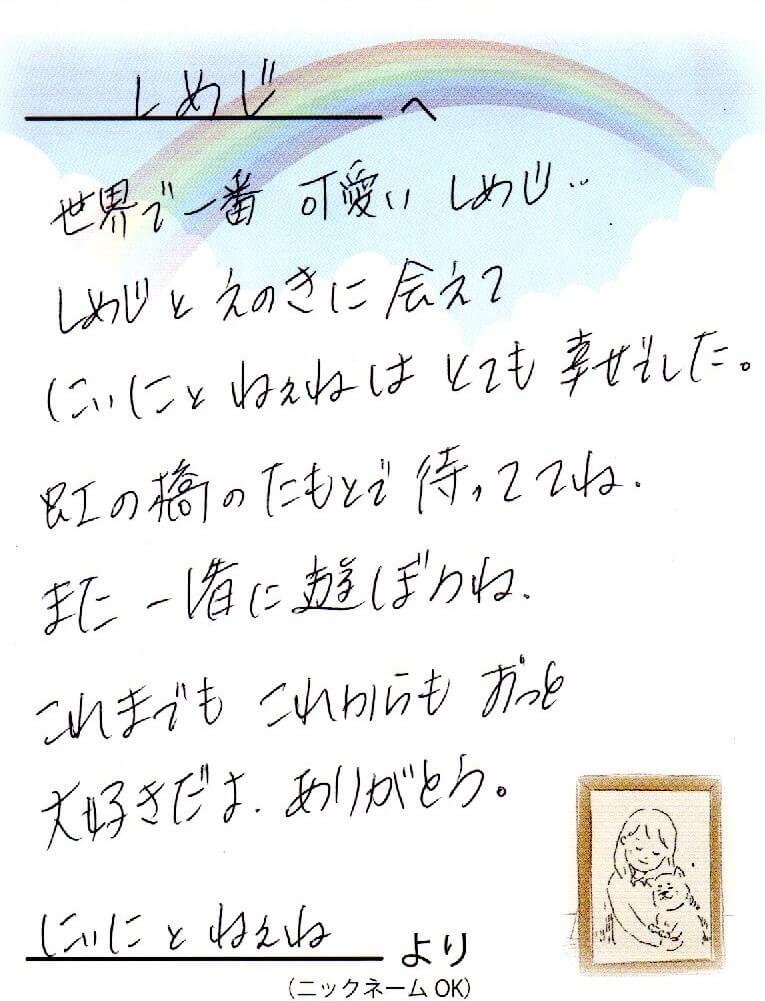 しめじ へ
世界で一番 可愛い しめじ‥
しめじと えのきに 会えて
にぃにと ねぇねは とても 幸せでした。
虹の橋のたもとで 待っててね.
また 一緒に 遊ぼうね.
これまでも これからも ずっと
大好きだよ. ありがとう。
にぃにと ねぇね より
(ニックネームOK)